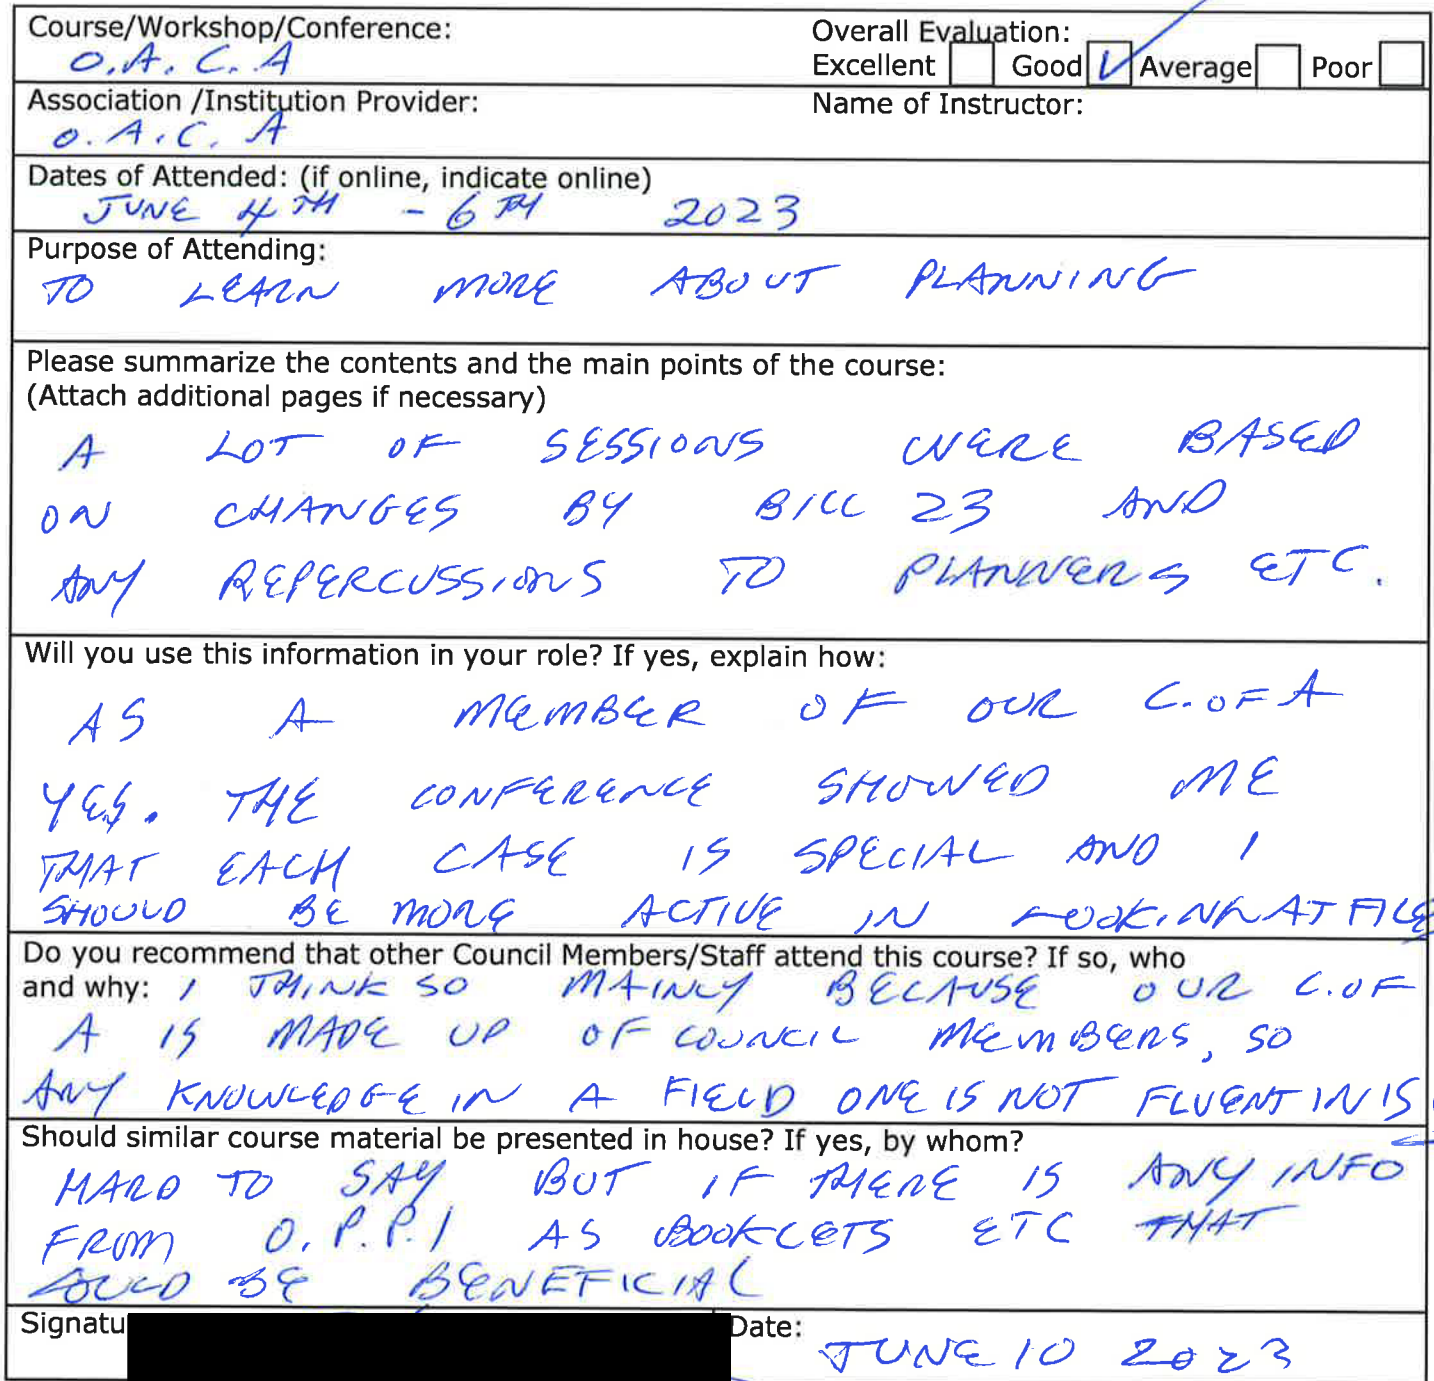 Course/Workshop/Conference:
O.A.C.A
Overall Evaluation:
Excellent Good Average Poor
Association /Institution Provider:
O.A.C.A
Name of Instructor:
Dates of Attended: (if online, indicate online)
JUNE 4TH - 6TH 2023
Purpose of Attending:
TO LEARN MORE ABOUT PLANNING
Please summarize the contents and the main points of the course:
(Attach additional pages if necessary)
A LOT OF SESSIONS WERE BASED
ON CHANGES BY BILL 23 AND
ANY REPERCUSSIONS TO PLANNERS ETC.
Will you use this information in your role? If yes, explain how:
AS A MEMBER OF OUR C.OF A
YES. THE CONFERENCE SHOWED ME
THAT EACH CASE IS SPECIAL AND I
SHOULD BE MORE ACTIVE IN LOOKING AT FILE
Do you recommend that other Council Members/Staff attend this course? If so, who
and why: I THINK SO MAINLY BECAUSE OUR C.OF
A IS MADE UP OF COUNCIL MEMBERS, SO
ANY KNOWLEDGE IN A FIELD ONE IS NOT FLUENT IN IS
Should similar course material be presented in house? If yes, by whom?
HARD TO SAY BUT IF THERE IS ANY INFO
FROM O.P.P.I AS BOOKLETS ETC THAT
COULD BE BENEFICIAL
Signatu
Date:
JUNE 10 2023